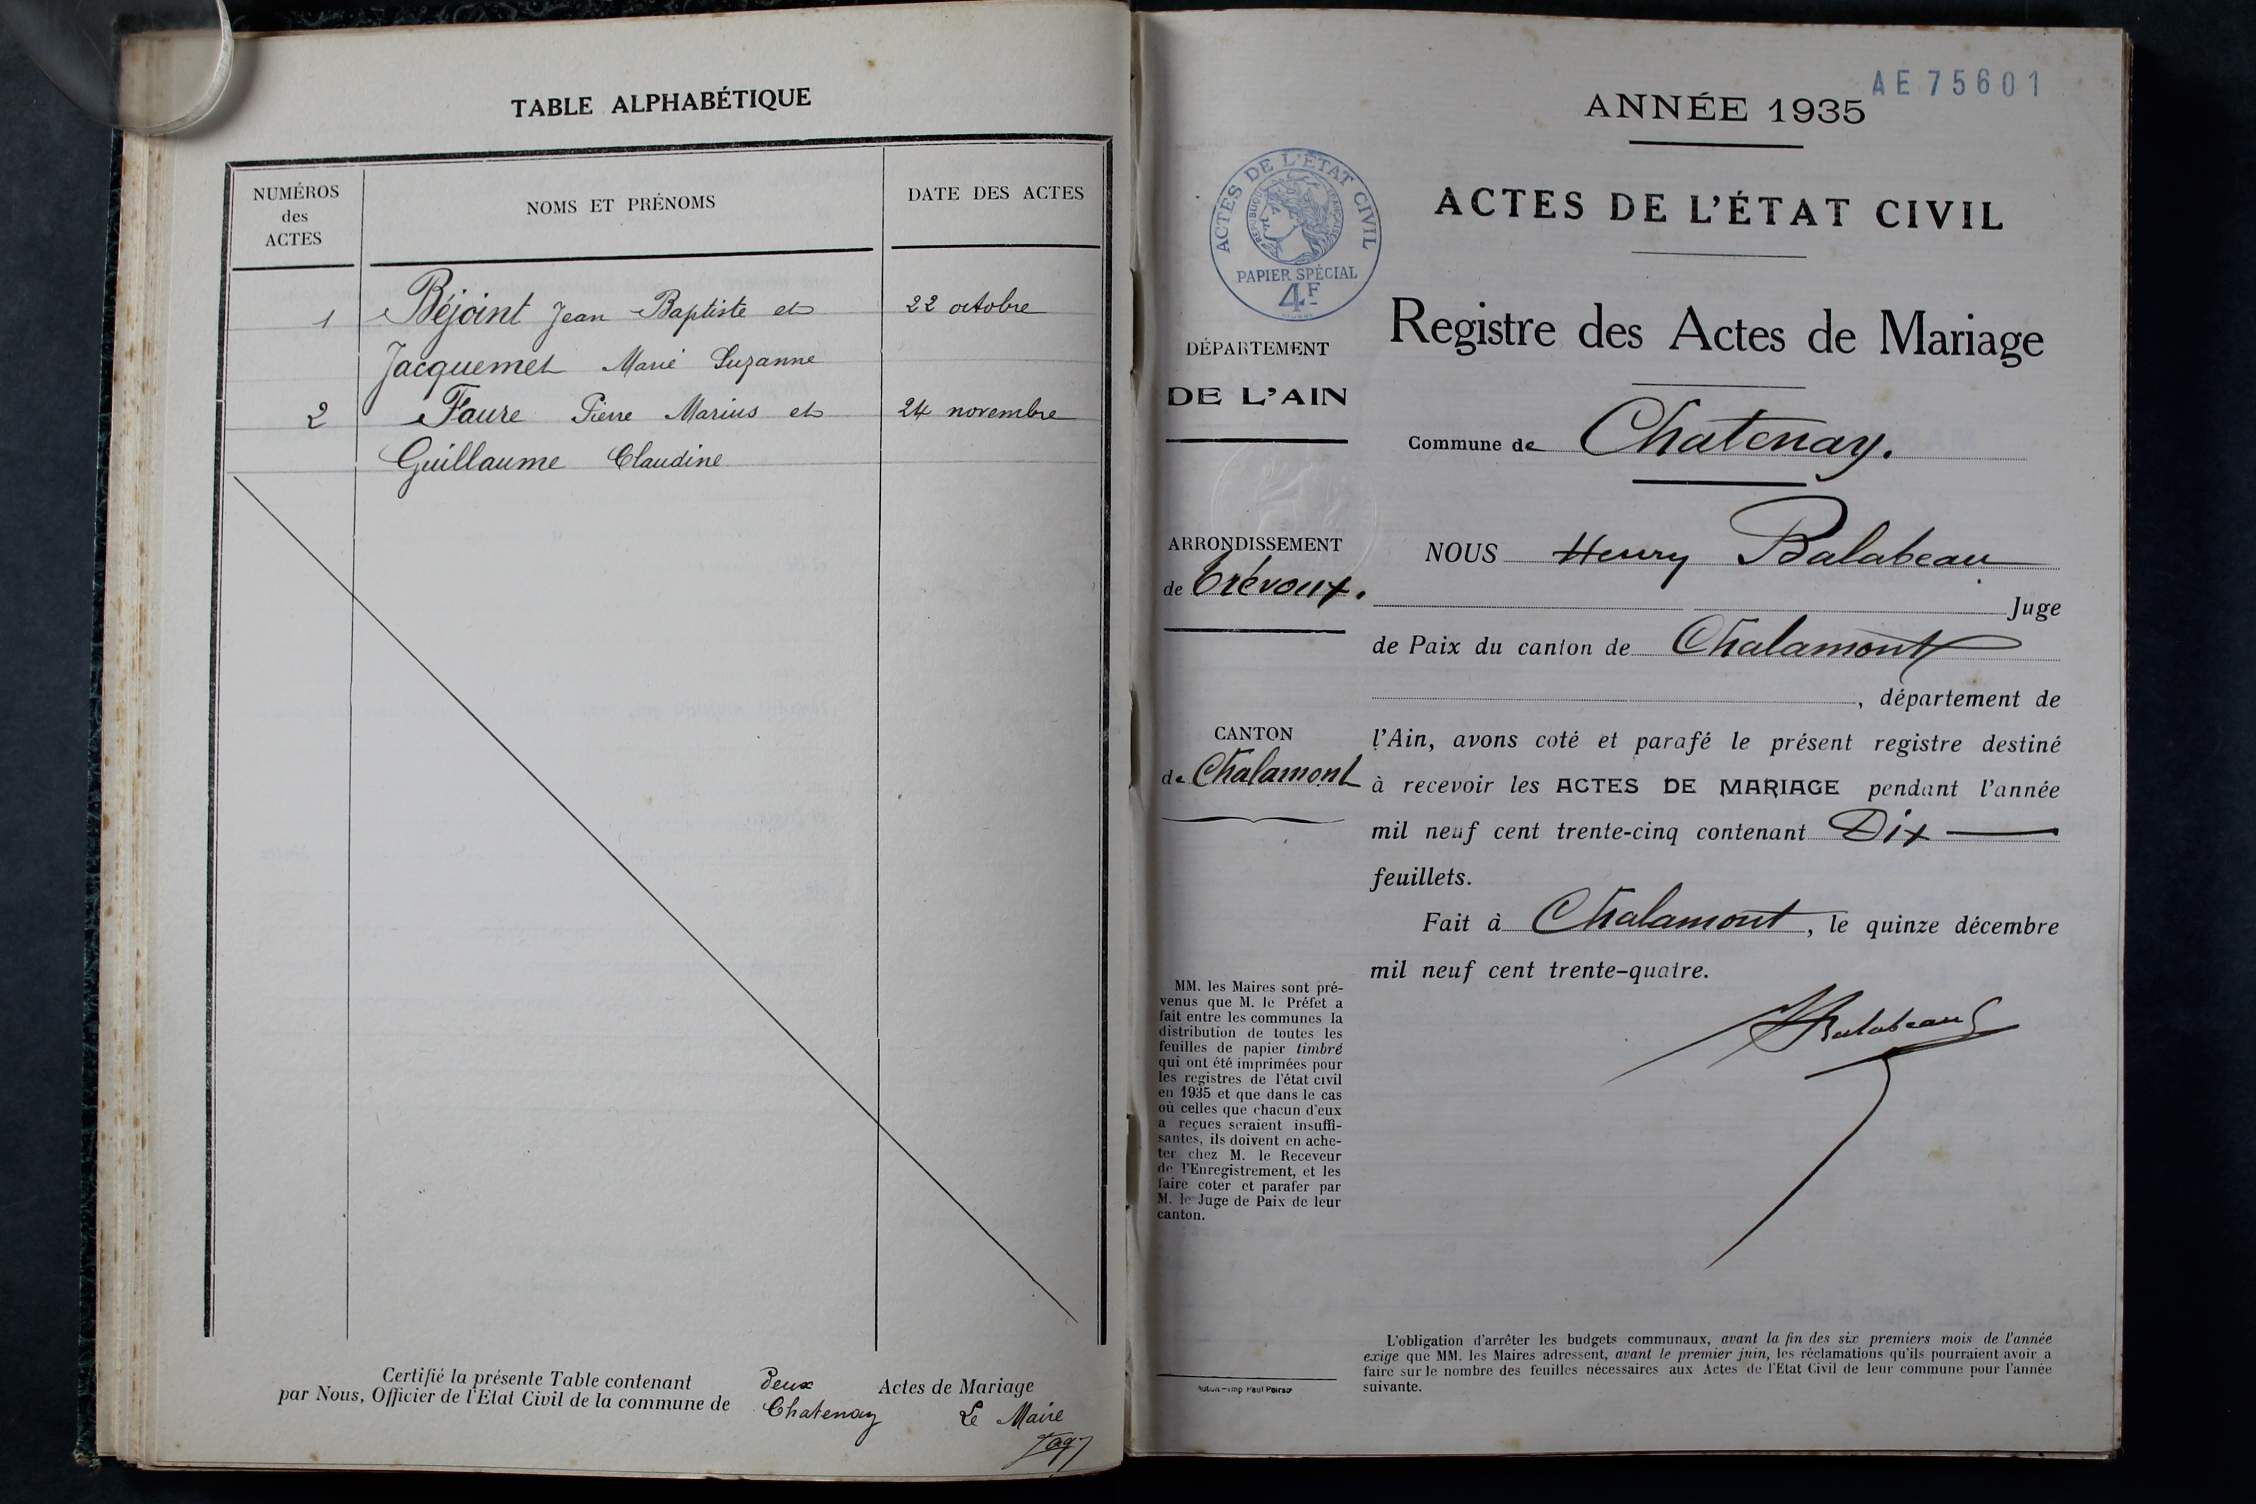 TABLE ALPHABÉTIQUE
NUMÉROS
des
ACTES
NOMS ET PRÉNOMS
DATE DES ACTES
1 Béjoint Jean Baptiste et 22 octobre
Jacquemet Marie Suzanne
2 Faure Pierre Marius et 24 novembre
Guillaume Claudine
Certifié la présente Table contenant deux Actes de Mariage
par Nous, Officier de l'Etat Civil de la commune de Chatenay Le Maire
AE 75601
ANNÉE 1935
ACTES DE L'ÉTAT CIVIL
ACTES DE L'ÉTAT CIVIL
RÉPUBLIQUE FRANÇAISE
PAPIER SPÉCIAL
4F
Registre des Actes de Mariage
DÉPARTEMENT
DE L'AIN
Commune de Chatenay.
ARRONDISSEMENT
de Trévoux.
CANTON
de Chalamont
NOUS Henry Balabeau
Juge
de Paix du canton de Chalamont
, département de
l'Ain, avons coté et parafé le présent registre destiné
à recevoir les ACTES DE MARIAGE pendant l'année
mil neuf cent trente-cinq contenant Dix
feuillets.
Fait à Chalamont, le quinze décembre
mil neuf cent trente-quatre.
HBalabeau
MM. les Maires sont pré-
venus que M. le Préfet a
fait entre les communes la
distribution de toutes les
feuilles de papier timbré
qui ont été imprimées pour
les registres de l'état civil
en 1935 et que dans le cas
où celles que chacun d'eux
a reçues seraient insuffi-
santes, ils doivent en ache-
ter chez M. le Receveur
de l'Enregistrement, et les
faire coter et parafer par
M. le Juge de Paix de leur
canton.
L'obligation d'arrêter les budgets communaux, avant la fin des six premiers mois de l'année
exige que MM. les Maires adressent, avant le premier juin, les réclamations qu'ils pourraient avoir a
faire sur le nombre des feuilles nécessaires aux Actes de l'Etat Civil de leur commune pour l'année
suivante.